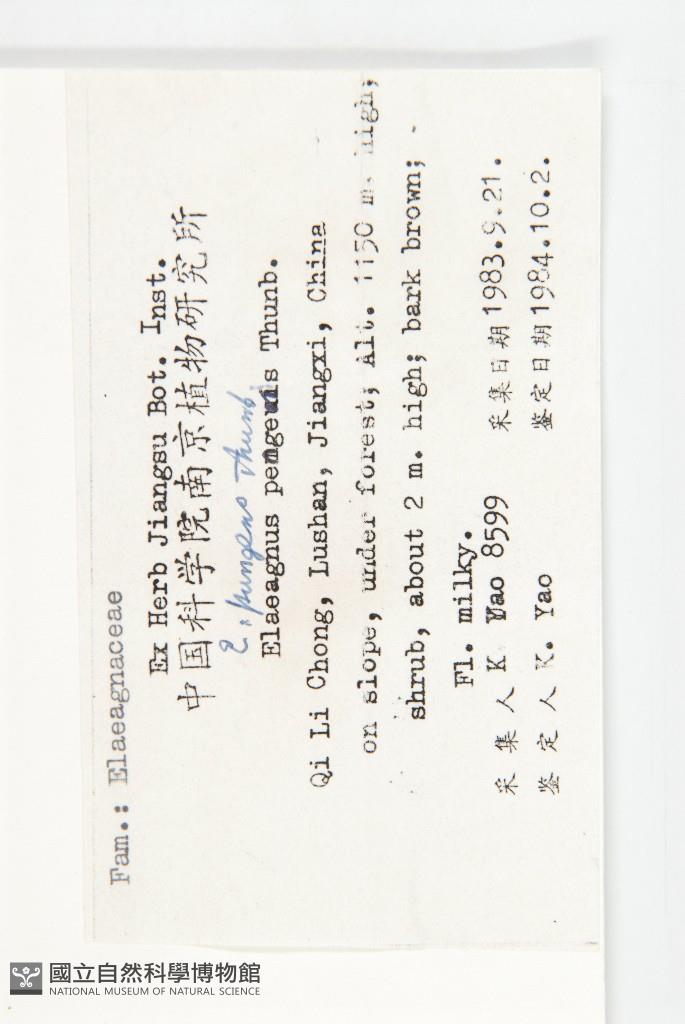 Fam.: Elaeagnaceae
Ex Herb Jiangsu Bot. Inst.
中国科学院南京植物研究所
E. pungens Thunb
Elaeagnus pengens Thunb.
Qi Li Chong, Lushan, Jiangxi, China
on slope, under forest; Alt. 1150 m. high;
shrub, about 2 m. high; bark brown;
Fl. milky.
采集人 K Yao 8599 采集日期 1983.9.21.
鉴定人 K. Yao 鉴定日期 1984.10.2.
國立自然科學博物館
NATIONAL MUSEUM OF NATURAL SCIENCE